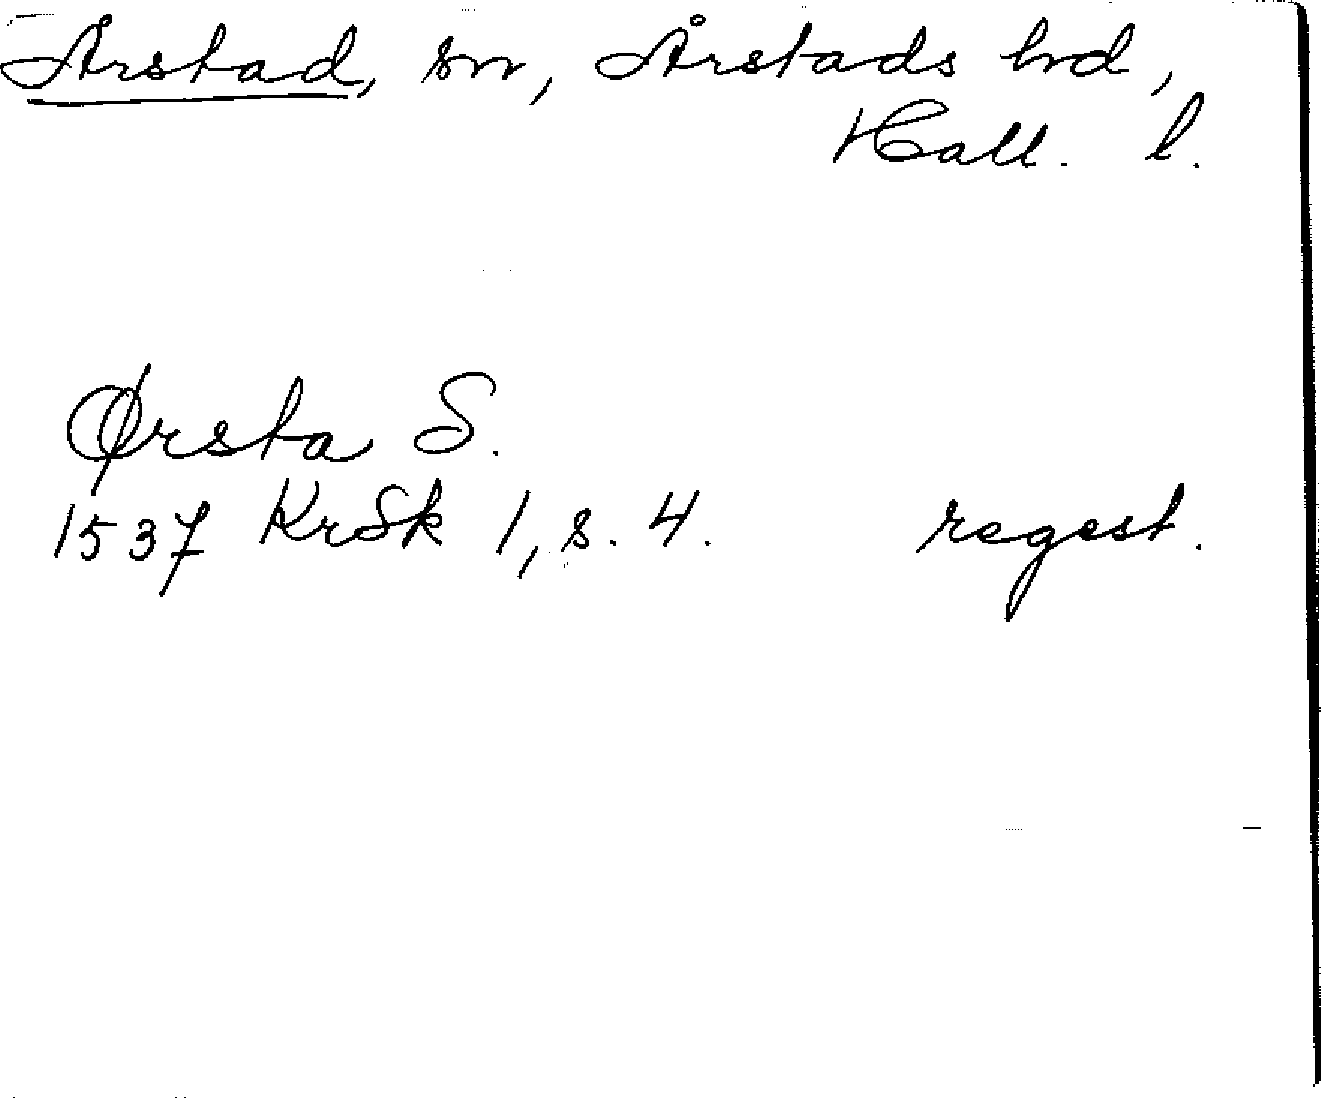 Årstad, sn, Årstads hd,
Hall. l.
Ørsta S.
1537 KrSk 1, s. 4. regest.